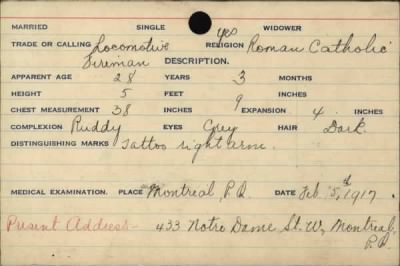 MARRIED SINGLE Yes WIDOWER
TRADE OR CALLING Locomotive RELIGION Roman Catholic
Fireman DESCRIPTION.
APPARENT AGE 28 YEARS 3 MONTHS
HEIGHT 5 FEET 9 INCHES
CHEST MEASUREMENT 38 INCHES EXPANSION 4 INCHES
COMPLEXION Ruddy EYES Grey HAIR Dark
DISTINGUISHING MARKS Tattoo right arm.
MEDICAL EXAMINATION. PLACE Montreal, P.Q. DATE Feb 5th, 1917
Present Address - 433 Notre Dame St. W, Montreal,
P.Q.